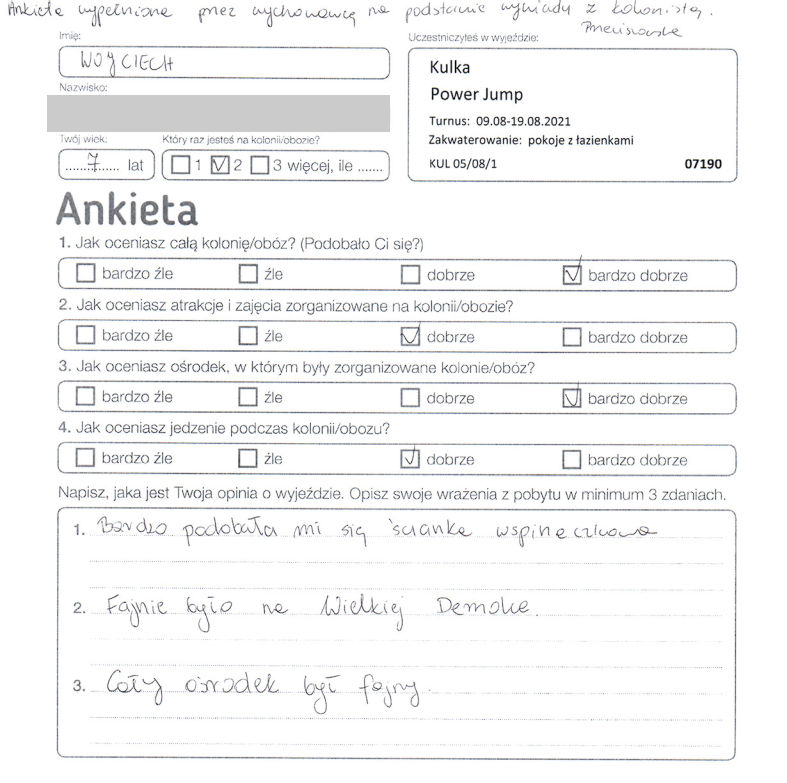 Ankieta wypełniona przez wychowawcę na podstawie wywiadu z kolonistą.
Imię:
WOJCIECH
Nazwisko:
Twój wiek:
7 lat
Który raz jesteś na kolonii/obozie?
1 2 3 więcej, ile .......
Uczestniczyłeś w wyjeździe:
Kulka
Power Jump
Turnus: 09.08-19.08.2021
Zakwaterowanie: pokoje z łazienkami
KUL 05/08/1 07190
Ankieta
1. Jak oceniasz całą kolonię/obóz? (Podobało Ci się?)
bardzo źle źle dobrze bardzo dobrze
2. Jak oceniasz atrakcje i zajęcia zorganizowane na kolonii/obozie?
bardzo źle źle dobrze bardzo dobrze
3. Jak oceniasz ośrodek, w którym były zorganizowane kolonie/obóz?
bardzo źle źle dobrze bardzo dobrze
4. Jak oceniasz jedzenie podczas kolonii/obozu?
bardzo źle źle dobrze bardzo dobrze
Napisz, jaka jest Twoja opinia o wyjeździe. Opisz swoje wrażenia z pobytu w minimum 3 zdaniach.
1. Bardzo podobała mi się ścianka wspinaczkowa
2. Fajnie było na Wielkiej Demolce.
3. Cały ośrodek był fajny.